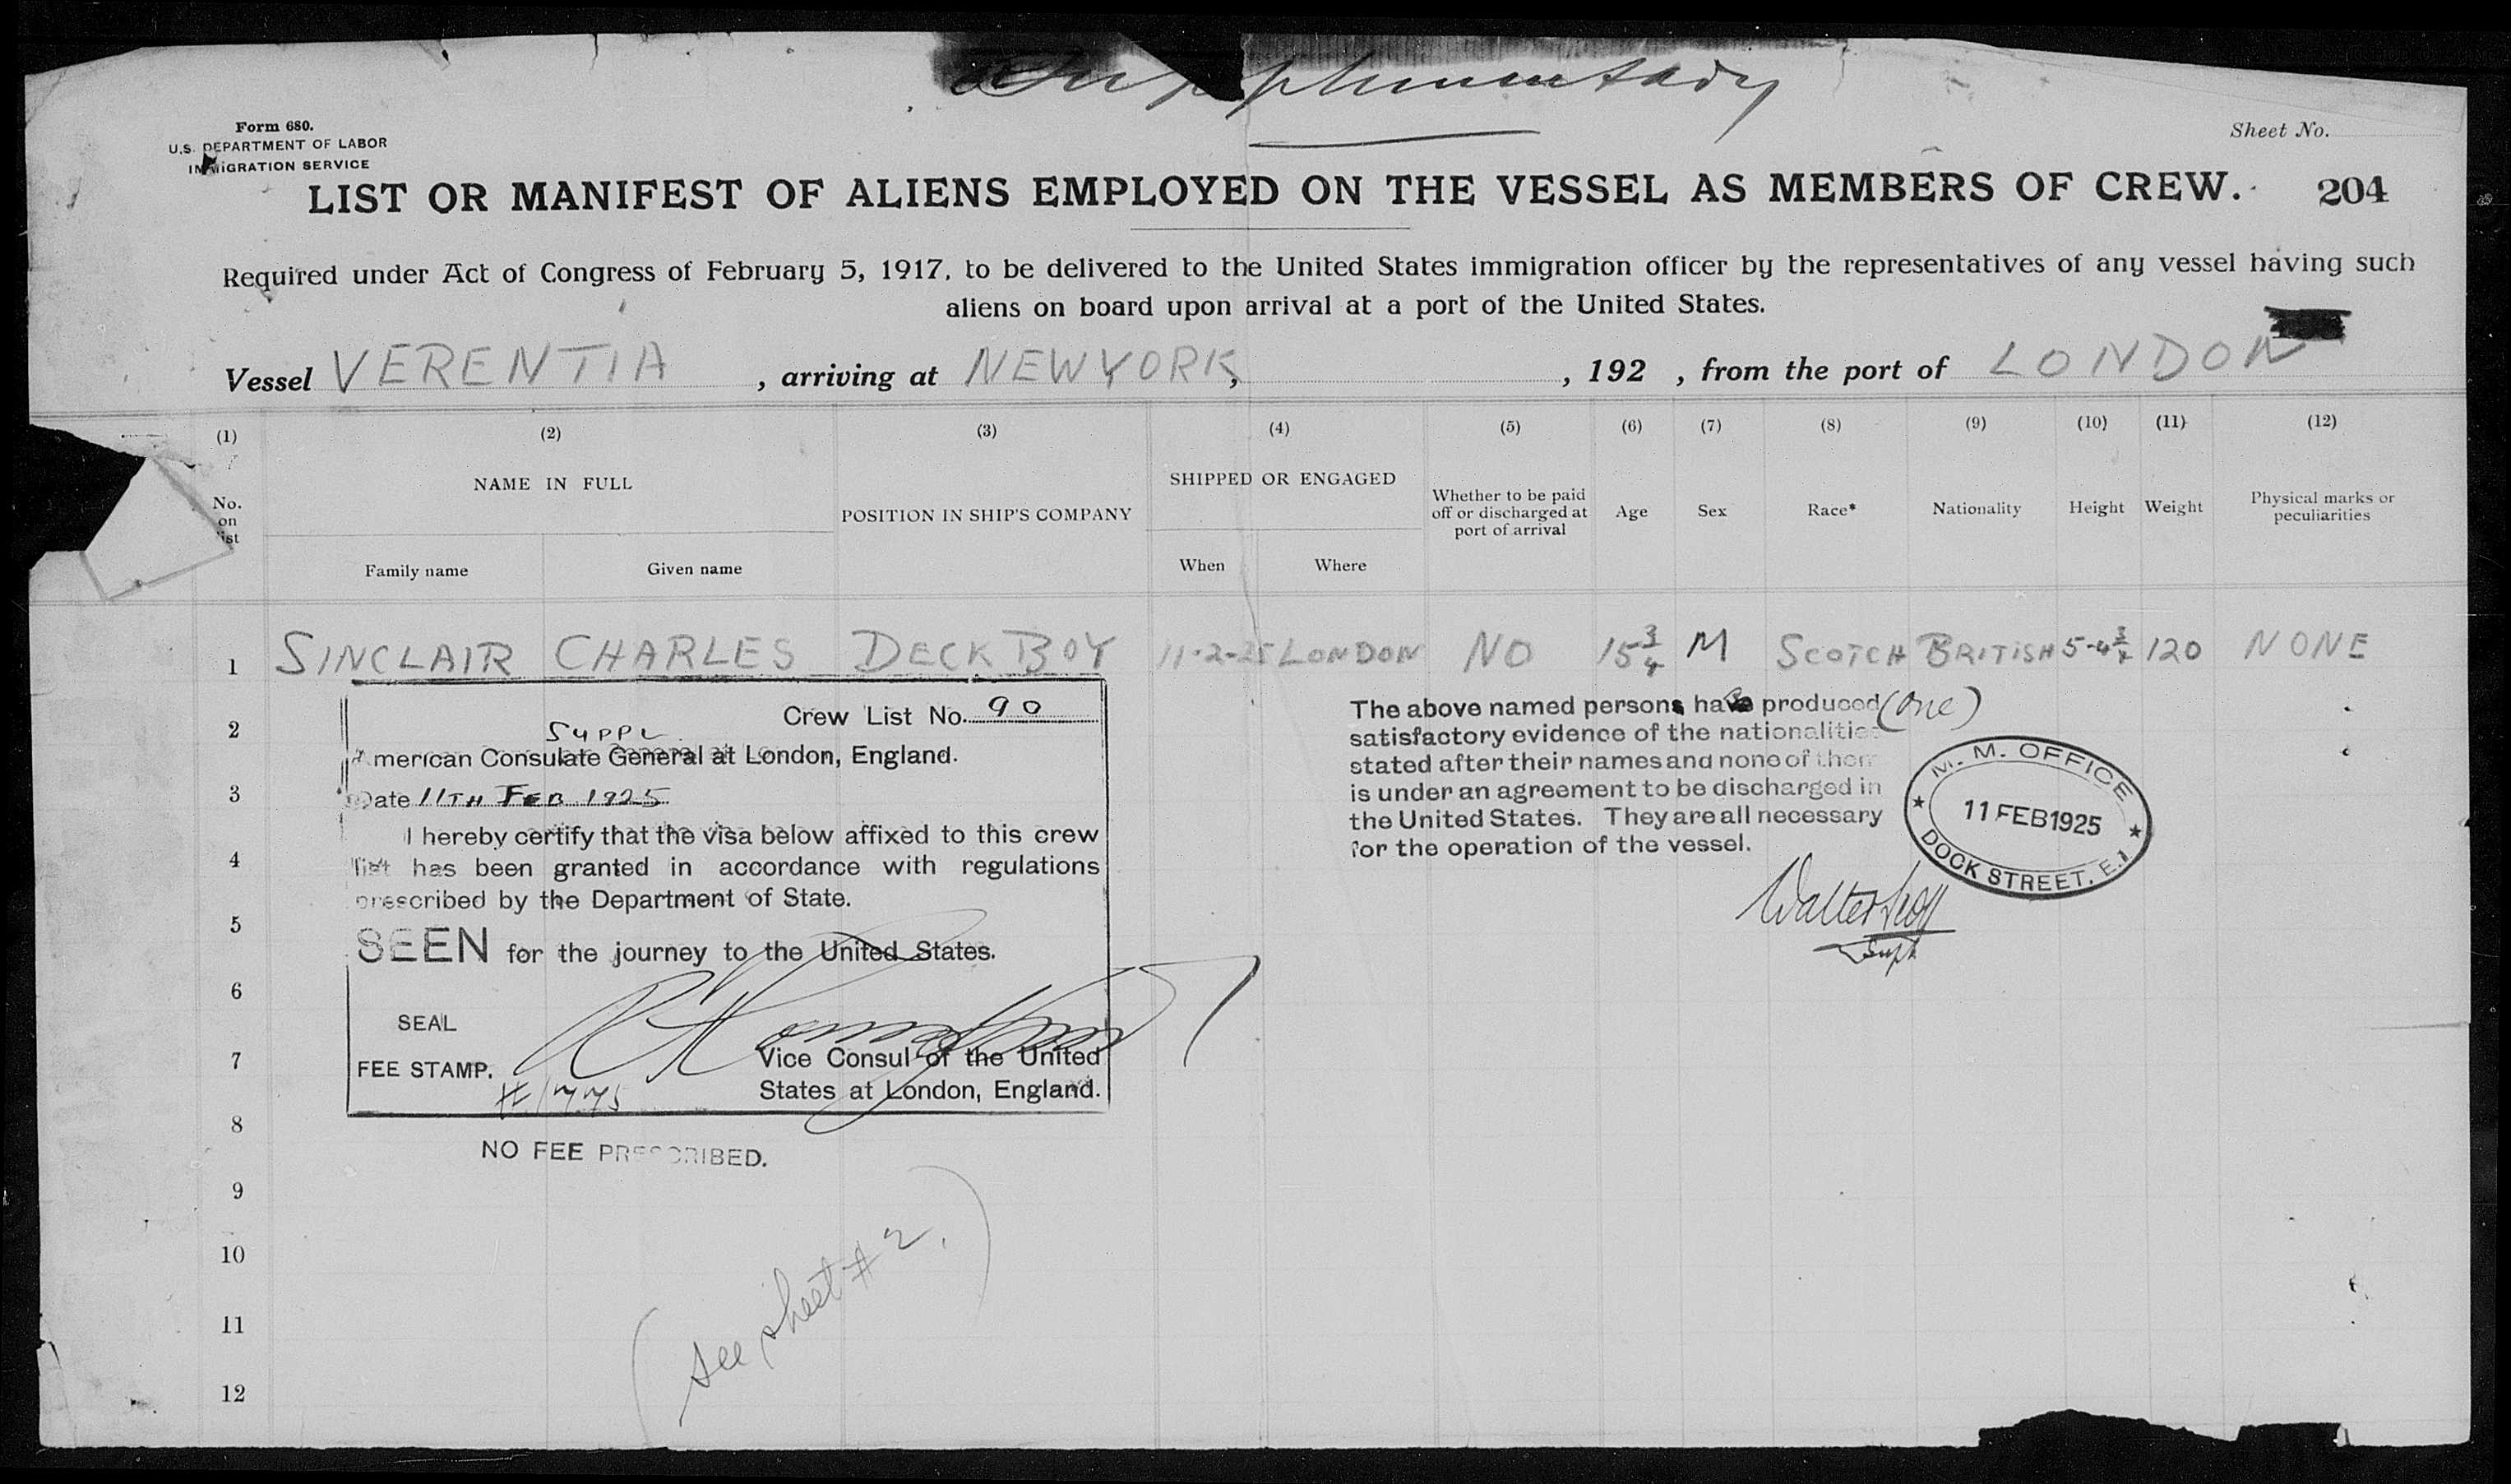 Supplementary
Form 680.
U.S. DEPARTMENT OF LABOR
IMMIGRATION SERVICE
Sheet No.
LIST OR MANIFEST OF ALIENS EMPLOYED ON THE VESSEL AS MEMBERS OF CREW. 204
Required under Act of Congress of February 5, 1917, to be delivered to the United States immigration officer by the representatives of any vessel having such
aliens on board upon arrival at a port of the United States.
Vessel VERENTIA, arriving at NEW YORK, , 192 , from the port of LONDON
(1) (2) (3) (4) (5) (6) (7) (8) (9) (10) (11) (12)
No. on list
NAME IN FULL
Family name Given name
POSITION IN SHIP'S COMPANY
SHIPPED OR ENGAGED
When Where
Whether to be paid
off or discharged at
port of arrival
Age Sex Race* Nationality Height Weight
Physical marks or
peculiarities
1 SINCLAIR CHARLES DECK BOY 11-2-25 LONDON NO 15 3/4 M SCOTCH BRITISH 5-4 3/4 120 NONE
2
3
4
5
6
7
8
9
10
11
12
Crew List No. 90
SUPPL
American Consulate General at London, England.
Date 11TH FEB 1925
I hereby certify that the visa below affixed to this crew
list has been granted in accordance with regulations
prescribed by the Department of State.
SEEN for the journey to the United States.
SEAL
FEE STAMP.
Vice Consul of the United
States at London, England.
NO FEE PRESCRIBED.
(see sheet # 2.)
The above named persons have produced (one)
satisfactory evidence of the nationalities
stated after their names and none of them
is under an agreement to be discharged in
the United States. They are all necessary
for the operation of the vessel.
M. M. OFFICE
11 FEB 1925
DOCK STREET. E.1
Walter
Supt